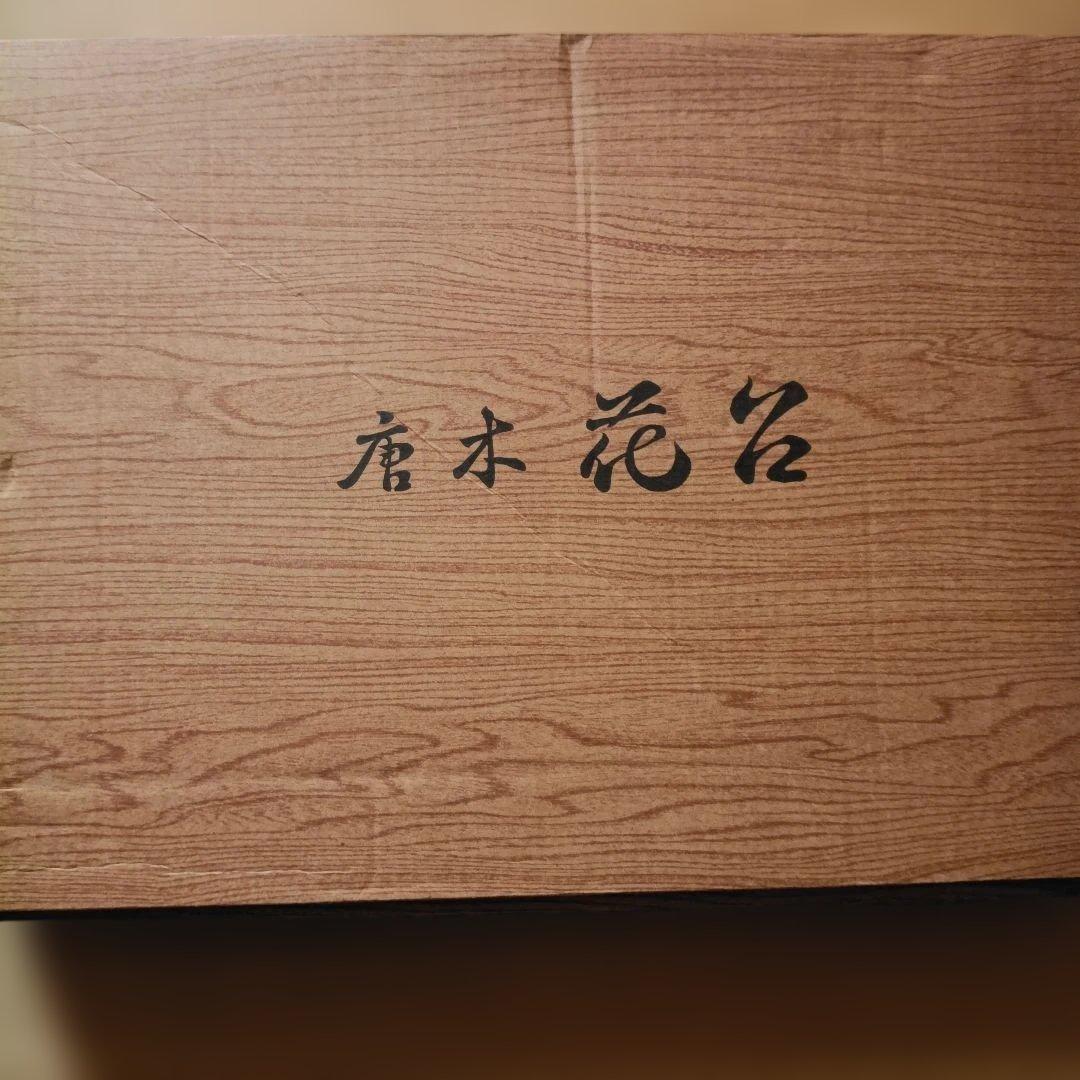 唐木花台